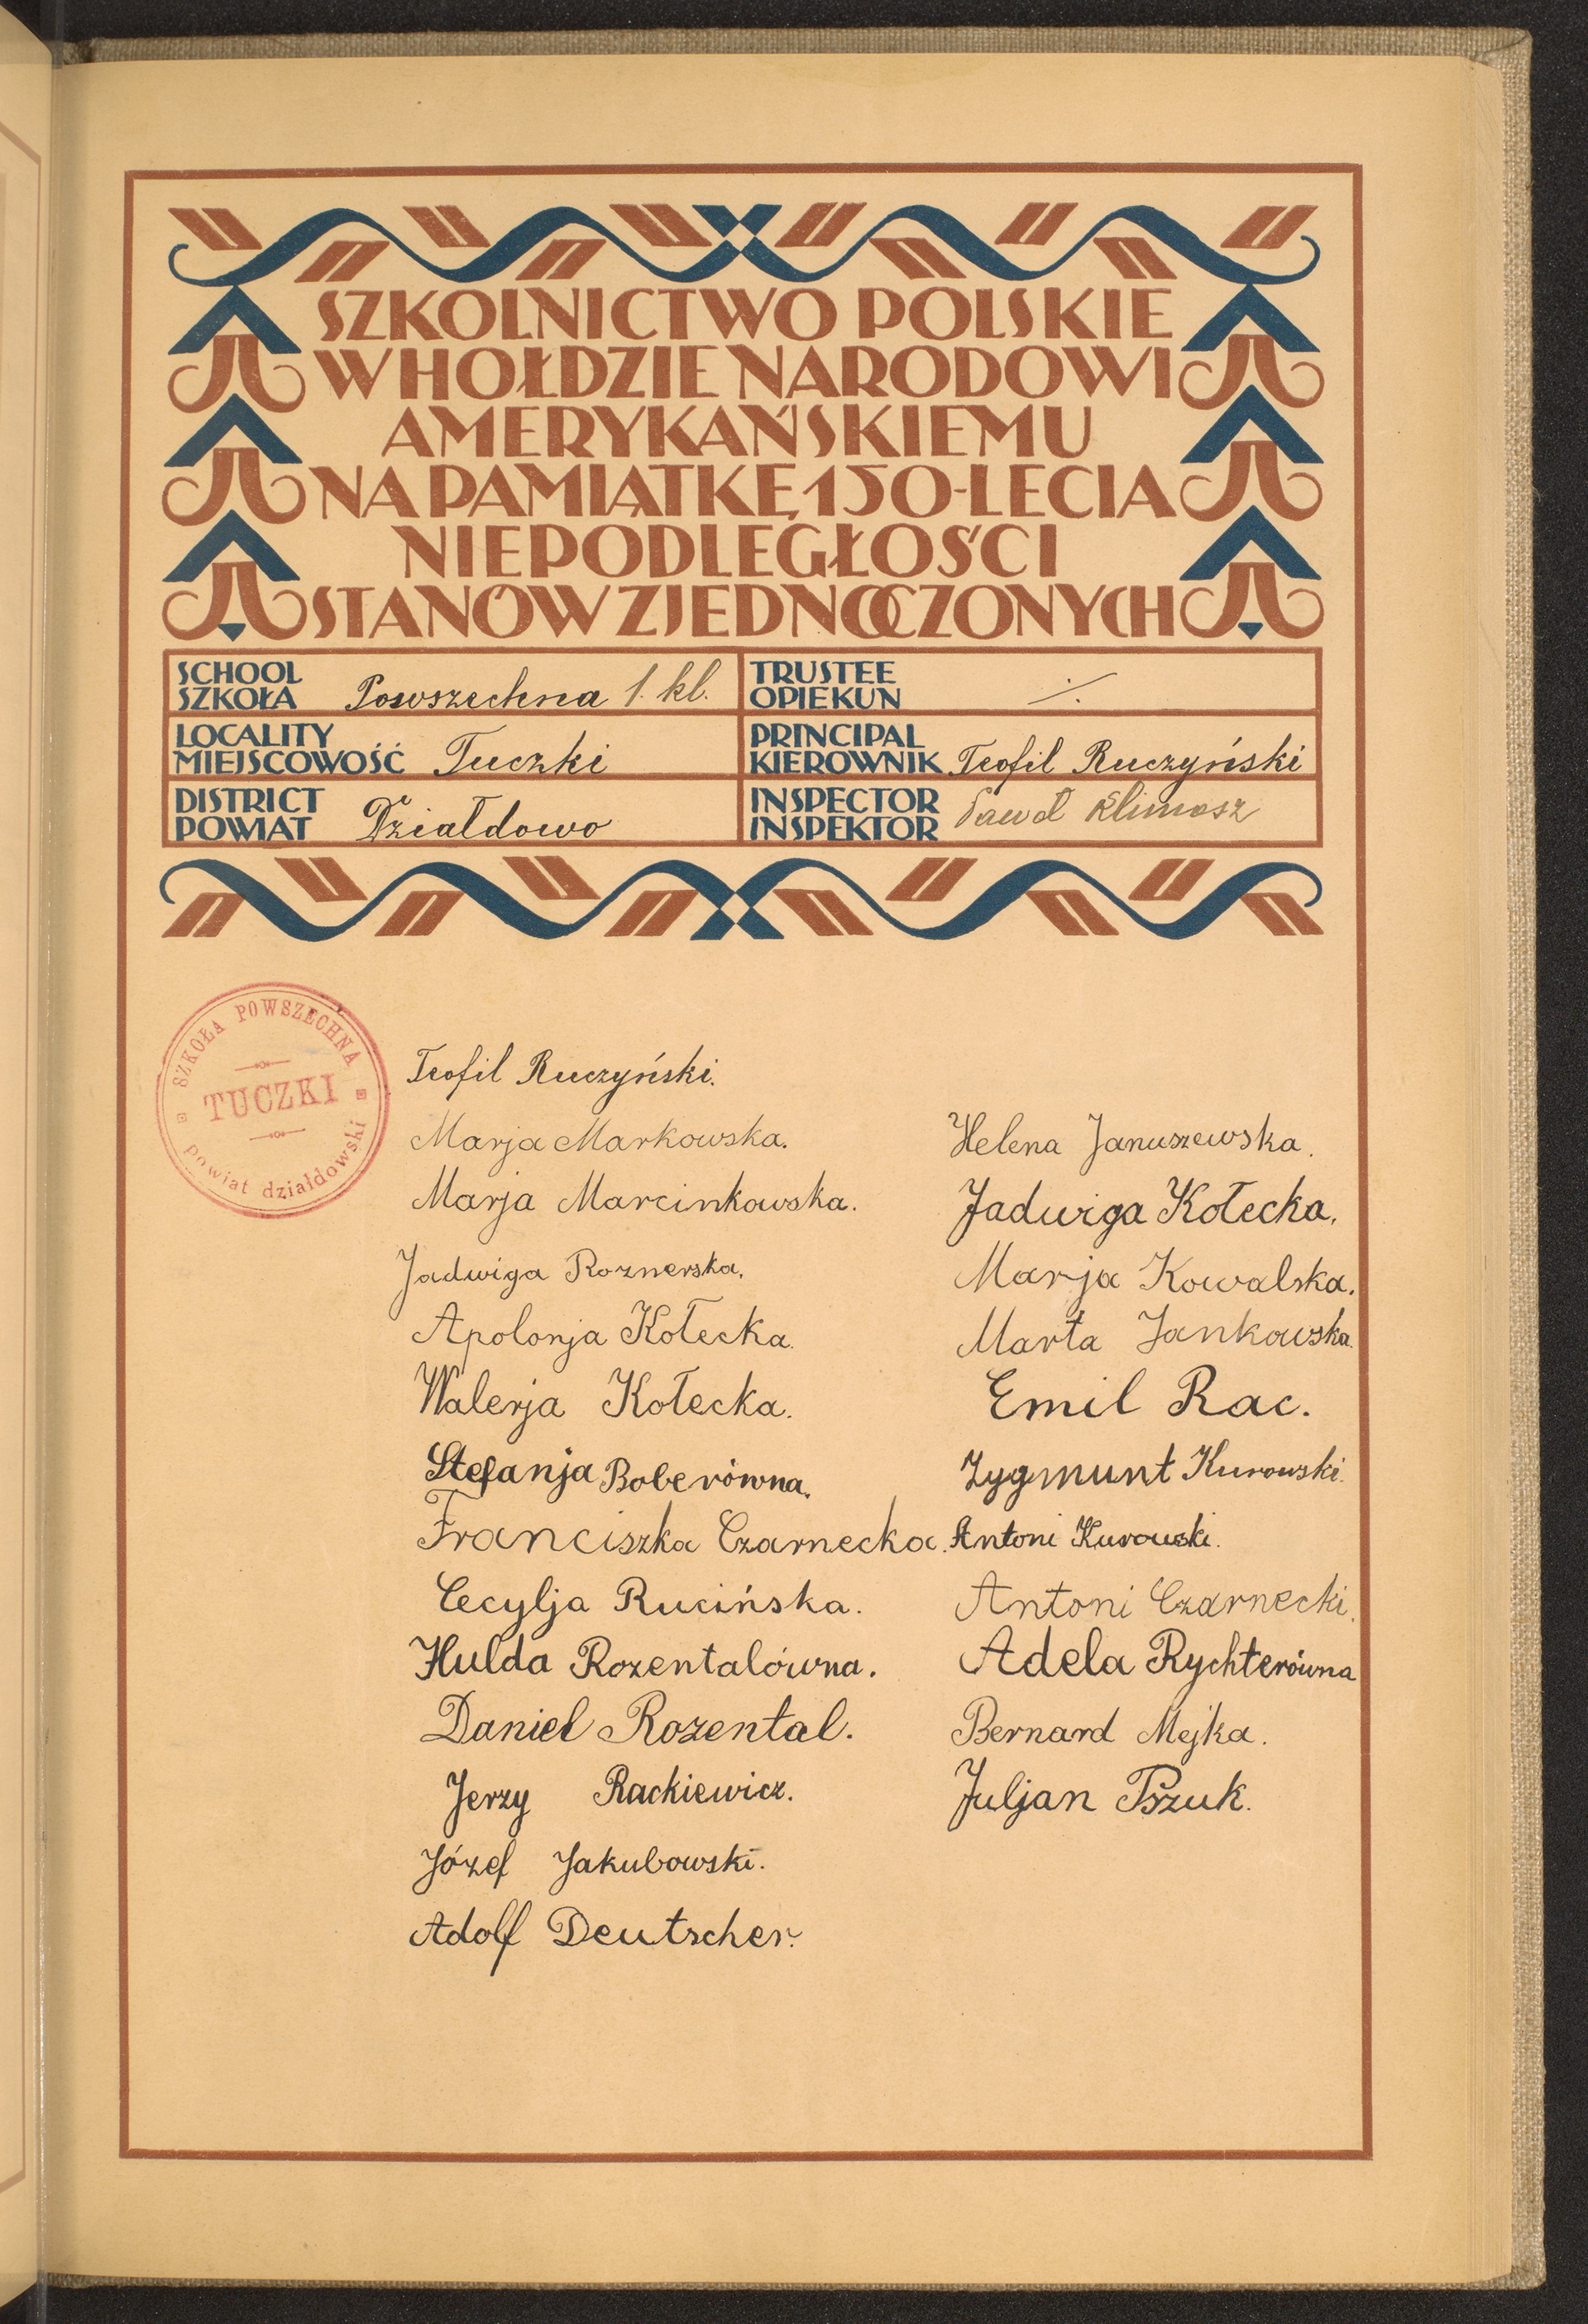 SZKOLNICTWO POLSKIE
W HOŁDZIE NARODOWI
AMERYKAŃSKIEMU
NA PAMIĄTKĘ 150-LECIA
NIEPODLEGŁOŚCI
STANÓW ZJEDNOCZONYCH
SCHOOL
SZKOŁA Powszechna 1. kl.
TRUSTEE
OPIEKUN ./.
LOCALITY
MIEJSCOWOŚĆ Tuczki
PRINCIPAL
KIEROWNIK Teofil Ruczyński
DISTRICT
POWIAT Działdowo
INSPECTOR
INSPEKTOR Paweł Klimosz
SZKOŁA POWSZECHNA
TUCZKI
powiat działdowski
Teofil Ruczyński.
Marja Markowska.
Marja Marcinkowska.
Jadwiga Roznerska.
Apolonja Kołecka.
Walerja Kołecka.
Stefanja Boberówna.
Franciszka Czarnecka.
Cecylja Rucińska.
Hulda Rozentalówna.
Daniel Rozental.
Jerzy Rackiewicz.
Józef Jakubowski.
Adolf Deutscher.
Helena Januszewska.
Jadwiga Kołecka.
Marja Kowalska.
Marta Jankowska.
Emil Rac.
Zygmunt Kurowski.
Antoni Kurowski.
Antoni Czarnecki.
Adela Rychterówna
Bernard Mejka.
Juljan Pszuk.